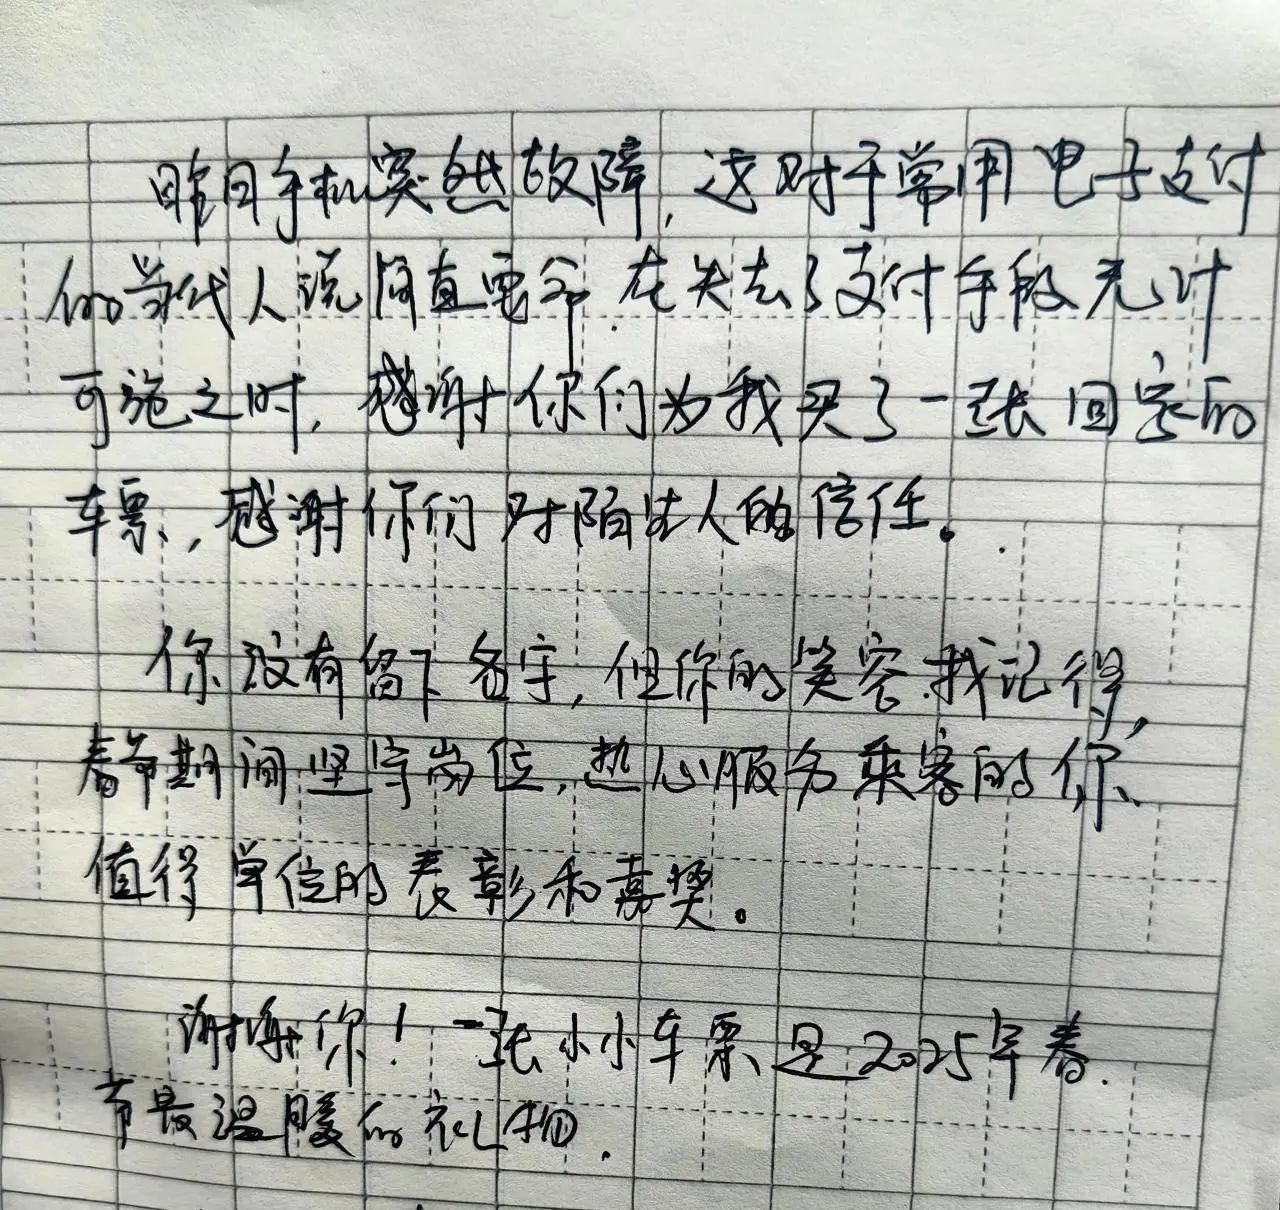 昨日手机突然故障，这对于常用电子支付
的当代人说简直要命，在失去了支付手段无计
可施之时，感谢你们为我买了一张回家的
车票，感谢你们对陌生人的信任。
你没有留下名字，但你的笑容我记得，
春节期间坚守岗位，热心服务乘客的你、
值得单位的表彰和嘉奖。
谢谢你！一张小小车票是2025年春
节最温暖的礼物.